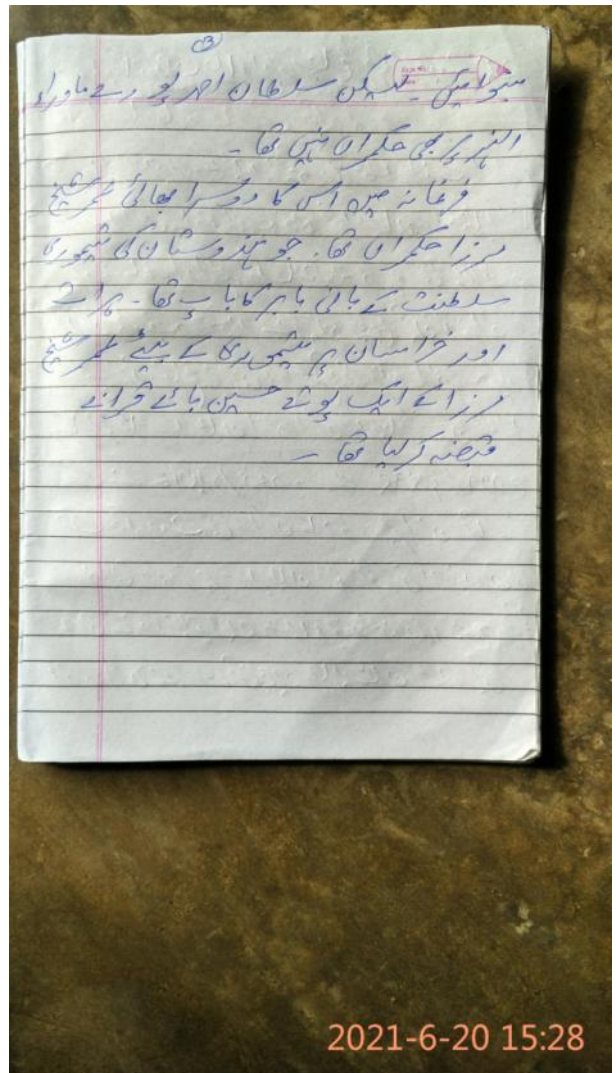 (3)
بنوائیں۔ لیکن سلطان احمد پورے ماوراء
النہر پر بھی حکمران نہیں تھا ۔
فرغانہ میں اس کا دوسرا بھائی عمر شیخ
مرزا حکمران تھا۔ جو ہندوستان کی تیموری
سلطنت کے بانی بابر کا باپ تھا ۔ ہرات
اور خراسان پر تیمور کے بیٹے عمر شیخ
مرزا کے ایک پوتے حسین بائے قرا نے
قبضہ کر لیا تھا ۔
2021-6-20 15:28